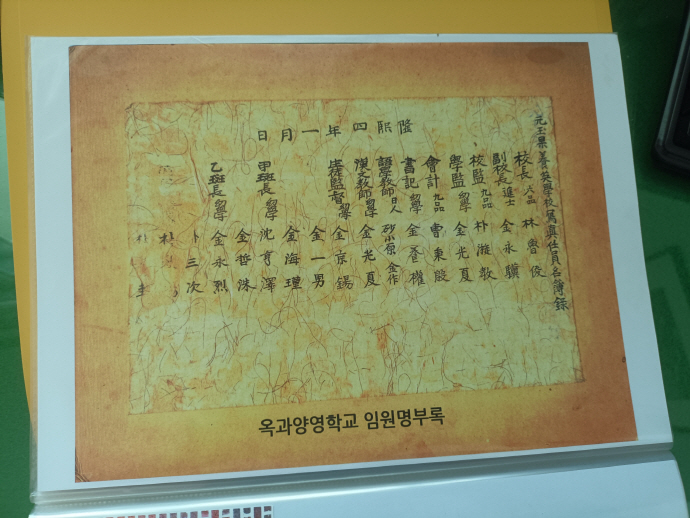 元玉果養英學校寫眞任員名簿錄
隆熙四年一月日
校長 六品 林曾俊
副校長 進士 金永驥
校監 九品 朴漼敎
學監 留學 金光夏
會計 九品 曺秉殷
書記 留學 金權
語學教師 日人 砂小原金作
漢文教師 留學 金光夏
生徒監督 留學 金京錫
金一男
金海瓊
甲班長 留學 沈亨澤
金哲洙
乙班長 留學 金永烈
卜三次
옥과양영학교 임원명부록